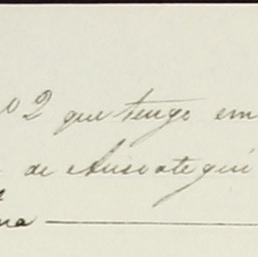 nº 2 que tengo em
de Ausoategui
na